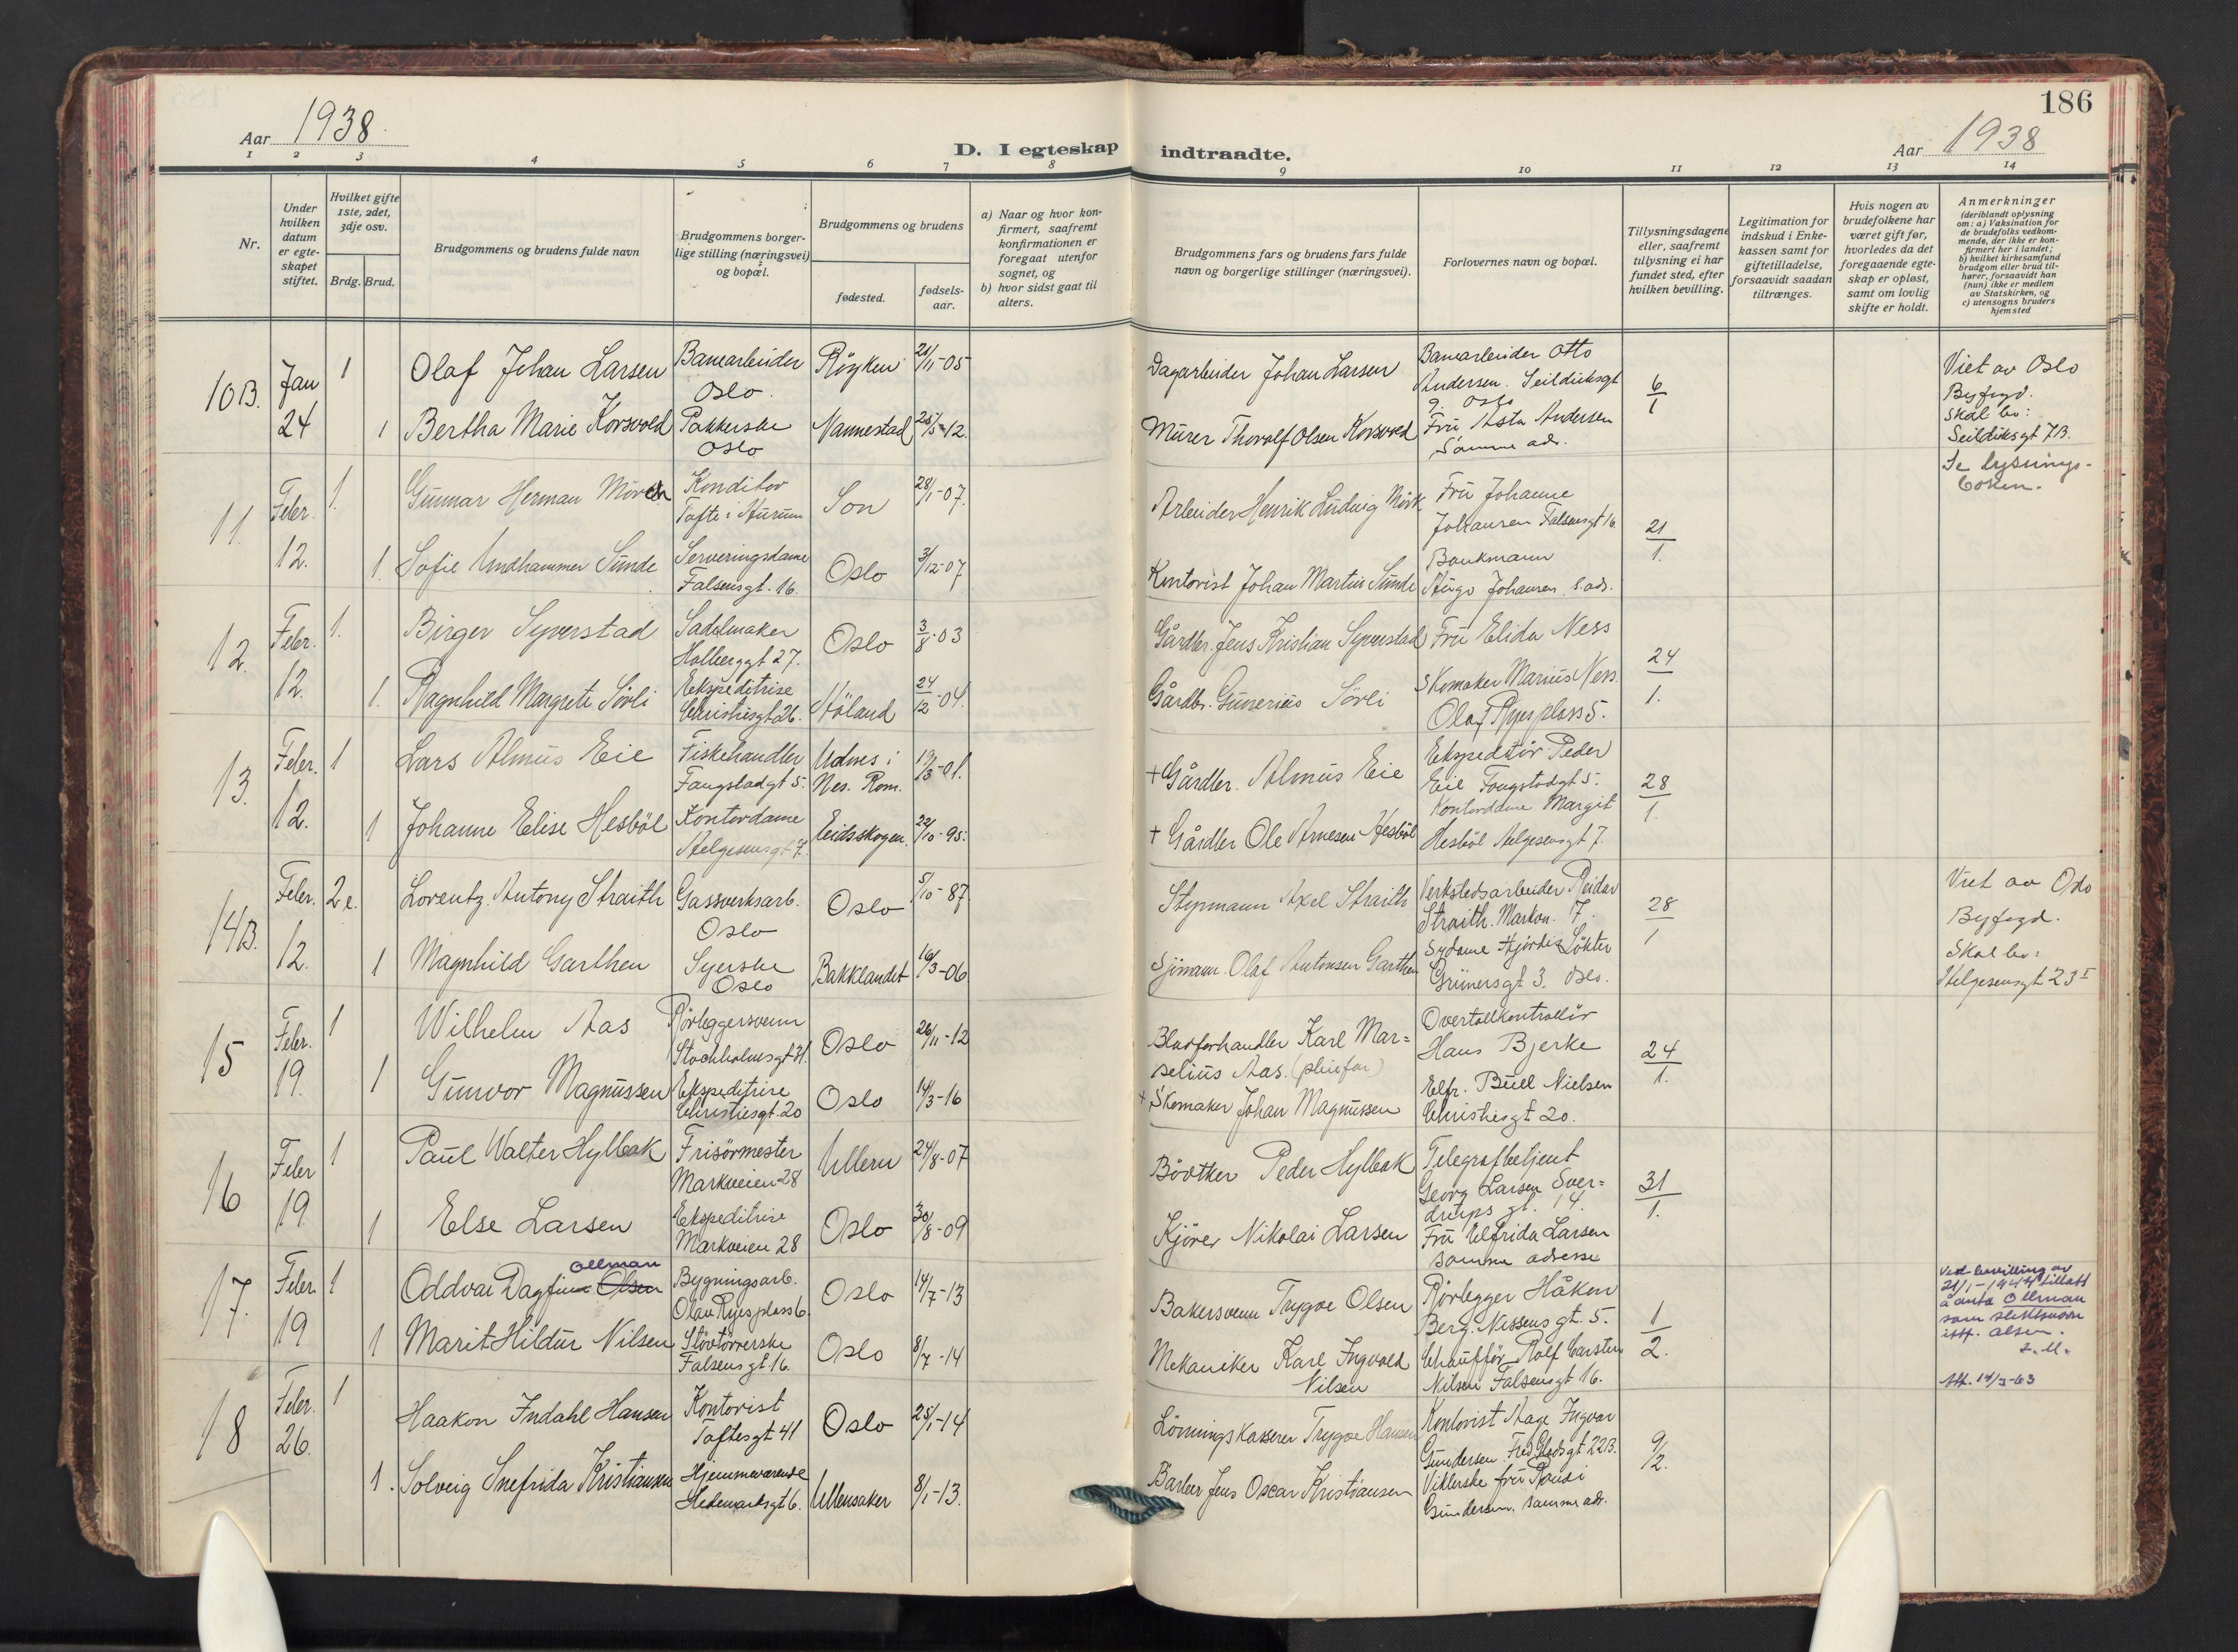 186
Aar 1938.
D. I egteskap indtraadte.
Aar 1938
1 2 3 4 5 6 7 8 9 10 11 12 13 14
Nr.
Under hvilken datum er egteskapet stiftet.
Hvilket gifte 1ste, 2det, 3dje osv.
Brdg. Brud.
Brudgommens og brudens fulde navn
Brudgommens borgerlige stilling (næringsvei) og bopæl.
Brudgommens og brudens
fødested.
fødselsaar.
a) Naar og hvor konfirmert, saafremt konfirmationen er foregaaet utenfor sognet, og
b) hvor sidst gaat til alters.
Brudgommens fars og brudens fars fulde navn og borgerlige stillinger (næringsvei).
Forlovernes navn og bopæl.
Tillysningsdagene eller, saafremt tillysning ei har fundet sted, efter hvilken bevilling.
Legitimation for indskud i Enkekassen samt for giftetilladelse, forsaavidt saadan tiltrænges.
Hvis nogen av brudefolkene har været gift før, hvorledes da det foregaaende egteskap er opløst, samt om lovlig skifte er holdt.
Anmerkninger
(deriblandt oplysning om: a) Vaksination for de brudefolks vedkommende, der ikke er konfirmert her i landet; b) hvilket kirkesamfund brudgom eller brud tilhører, forsaavidt han (hun) ikke er medlem av Statskirken, og c) utensogns bruders hjemsted
10B. Jan 24 1 Olaf Johan Larsen Banearbeider Oslo. Røyken 21/11-05 Dagarbeider Johan Larsen
Banearbeider Otto Andersen. Seilduksgt 9. Oslo 6/1 Viet av Oslo Byfogd. Skal bo: Seilduksgt 7B.
1 Bertha Marie Korsvold Pakkerske Oslo Nannestad 25/5-12. Murer Thorolf Olsen Korsvold Fru Asta Andersen Samme adr.
Se lysningsboken.
11. Febr. 12. 1. Gunnar Herman Mörch Konditor Tofte i Hurum Son 28/1-07. Arbeider Henrik Ludvig Mörk Fru Johanne Johansen Falsensgt 16 21/1.
1. Sofie Undhammer Sunde Serveringsdame Falsensgt. 16. Oslo 3/12-07 Kontorist Johan Martin Sunde Bankmann Hugo Johansen s. adr.
12. Febr. 12. 1. Birger Syverstad Sadelmaker Holberggt 27. Oslo 3/8-03 Gårdbr. Jens Kristian Syverstad Fru Elida Ness 24/1.
1. Ragnhild Margrete Sörli Ekspeditrise Christiesgt 26. Höland 24/12-04. Gårdbr. Gunerius Sörli Skomaker Marius Ness. Olaf Ryes plass 5.
13. Febr. 12. 1 Lars Almus Eie Fiskehandler Fougstadgt 5. Udnes i Nes. Rom. 19/3-01. + Gårdbr. Almus Eie Ekspeditör Peder Eie Fougstadgt 5. 28/1.
1 Johanne Elise Hesböl Kontordame Helgesensgt 7. Eidsskogen. 22/10-95. + Gårdbr Ole Arnesen Hesböl Kontordame Margit Hesböl Helgesensgt 7.
14B. Febr. 12. 2e. Lorentz Antony Straith Gassverksarb. Oslo Oslo 5/10-87 Styrmann Axel Straith Verkstedsarbeider Reidar Straith. Markv. 7. 28/1 Viet av Oslo Byfogd. Skal bo: Helgesensgt 23 I
1 Magnhild Garthen Syerske Oslo Bakklandet 16/3-06 Sjömann Olaf Antonsen Garthen Sydame Hjördis Lökter Grünersgt 3. Oslo.
15 Febr. 19. 1 Wilhelm Aas Rörleggersvenn Stockholmsgt 31. Oslo 26/11-12 Bladforhandler Karl Marselius Aas. (pleiefar) Overtollkontrollör Hans Bjerke 24/1.
1 Gunvor Magnussen Ekspeditrise Christiesgt. 20 Oslo 14/3-16 + Skomaker Johan Magnussen Elfr. Buell Nielsen Christiesgt 20.
16 Febr 19. 1 Paul Walter Hylbak Frisörmester Markveien 28 Ullern 24/8-07 Bödtker Peder Hylbak Telegrafbetjent Georg Larsen Sverdrups gt. 14. 31/1.
1 Else Larsen Ekspeditrise Markveien 28 Oslo 30/8-09 Kjörer Nikolai Larsen Fru Elfrida Larsen samme adresse
17. Febr 19 1 Oddvar Dagfinn Olsen Ollman Bygningsarb. Olav Ryesplass 6. Oslo 14/7-13 Bakersvenn Trygve Olsen Rörlegger Håkon Berg. Nissens gt. 5. 1/2. Ved bevilling av 21/1-1944 tillatt å anta Ollman som slektsnavn istf. Olsen.
1 Marit Hildur Nilsen Stövtörrerske Falsens gt 16. Oslo 8/7-14 Mekaniker Karl Ingvald Nilsen Chaufför Rolf Carsten Nilsen Falsensgt 16. Att. 14/3-63
18 Febr. 26. 1 Haakon Indahl Hansen Kontorist Toftesgt 41 Oslo 25/1-14 Lönningskasserer Trygve Hansen Kontorist Aage Ingvar Gundersen Fred Gladsgt 22B. 9/2.
1. Solveig Snefrida Kristiansen Hjemmeværende Hedemarksgt 6. Ullensaker 8/1-13. Barber Jens Oscar Kristiansen Viklerske fru Randi Gundersen, samme adr.